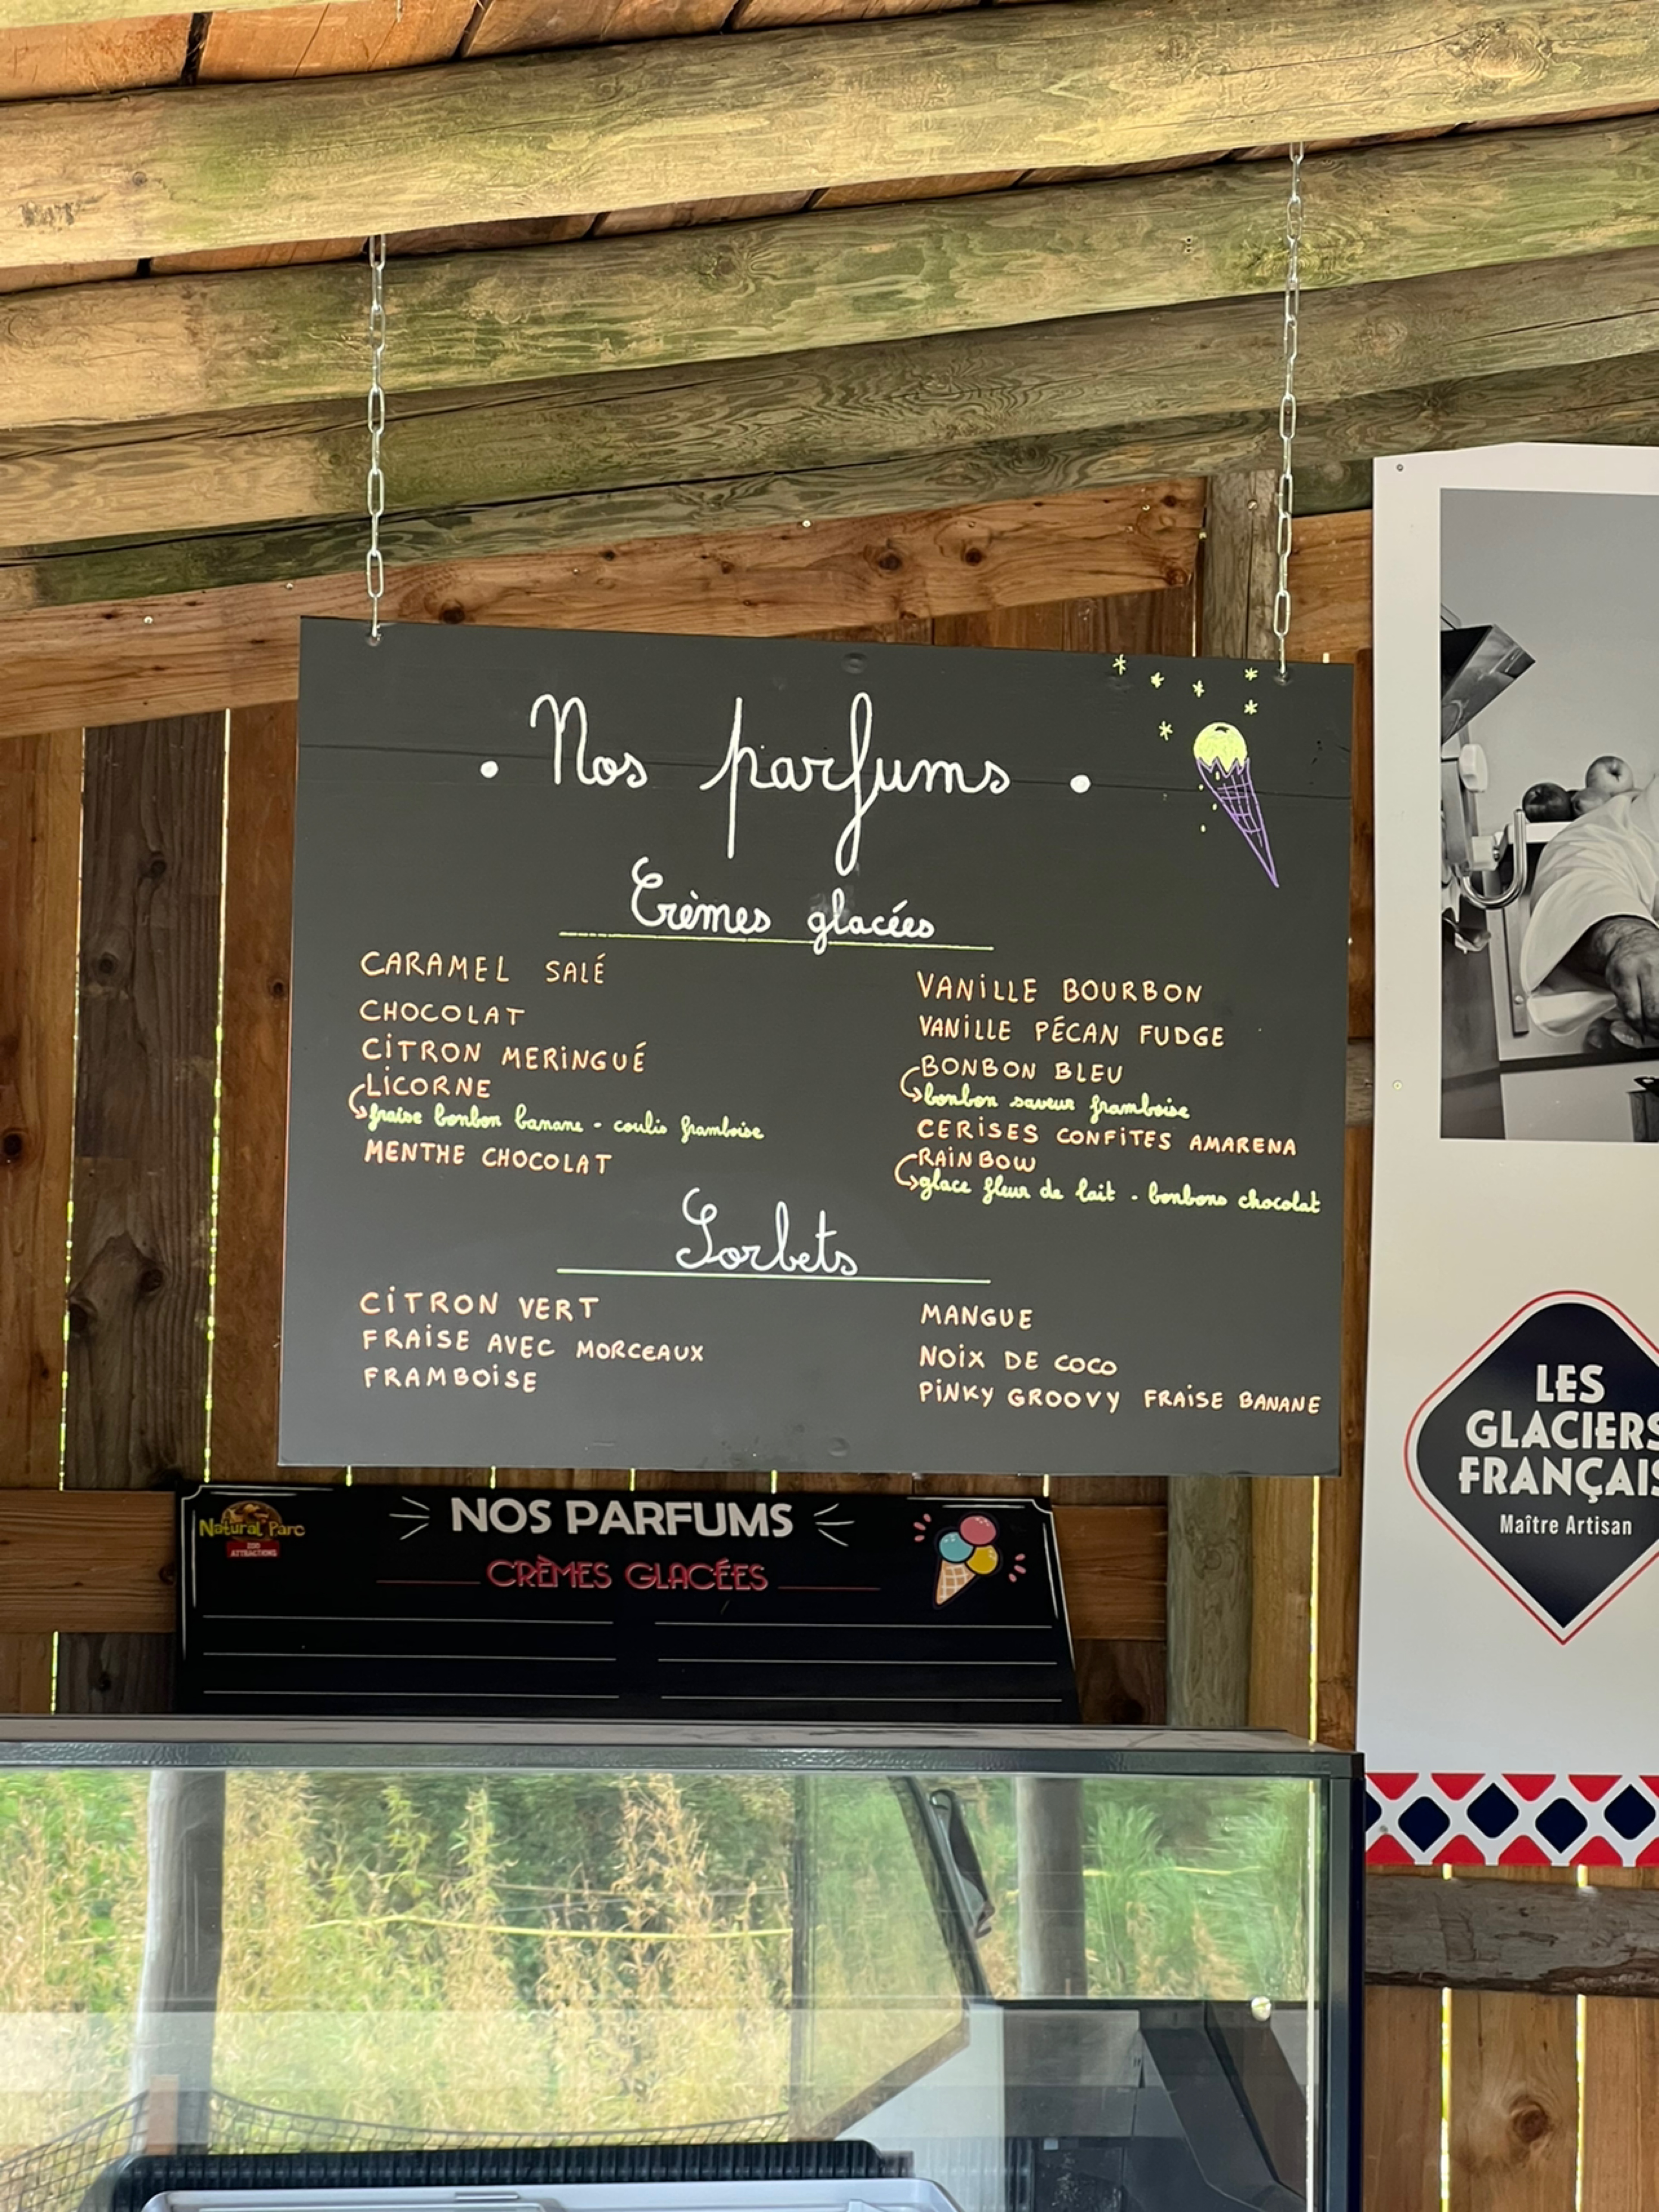 • Nos parfums •
Crèmes glacées
CARAMEL SALÉ
CHOCOLAT
CITRON MERINGUÉ
LICORNE
fraise bonbon banane - coulis framboise
MENTHE CHOCOLAT
VANILLE BOURBON
VANILLE PÉCAN FUDGE
BONBON BLEU
bonbon saveur framboise
CERISES CONFITES AMARENA
RAINBOW
glace fleur de lait - bonbons chocolat
Sorbets
CITRON VERT
FRAISE AVEC MORCEAUX
FRAMBOISE
MANGUE
NOIX DE COCO
PINKY GROOVY FRAISE BANANE
Natural' Parc
ZOO
ATTRACTIONS
NOS PARFUMS
CRÈMES GLACÉES
LES
GLACIERS
FRANÇAIS
Maître Artisan